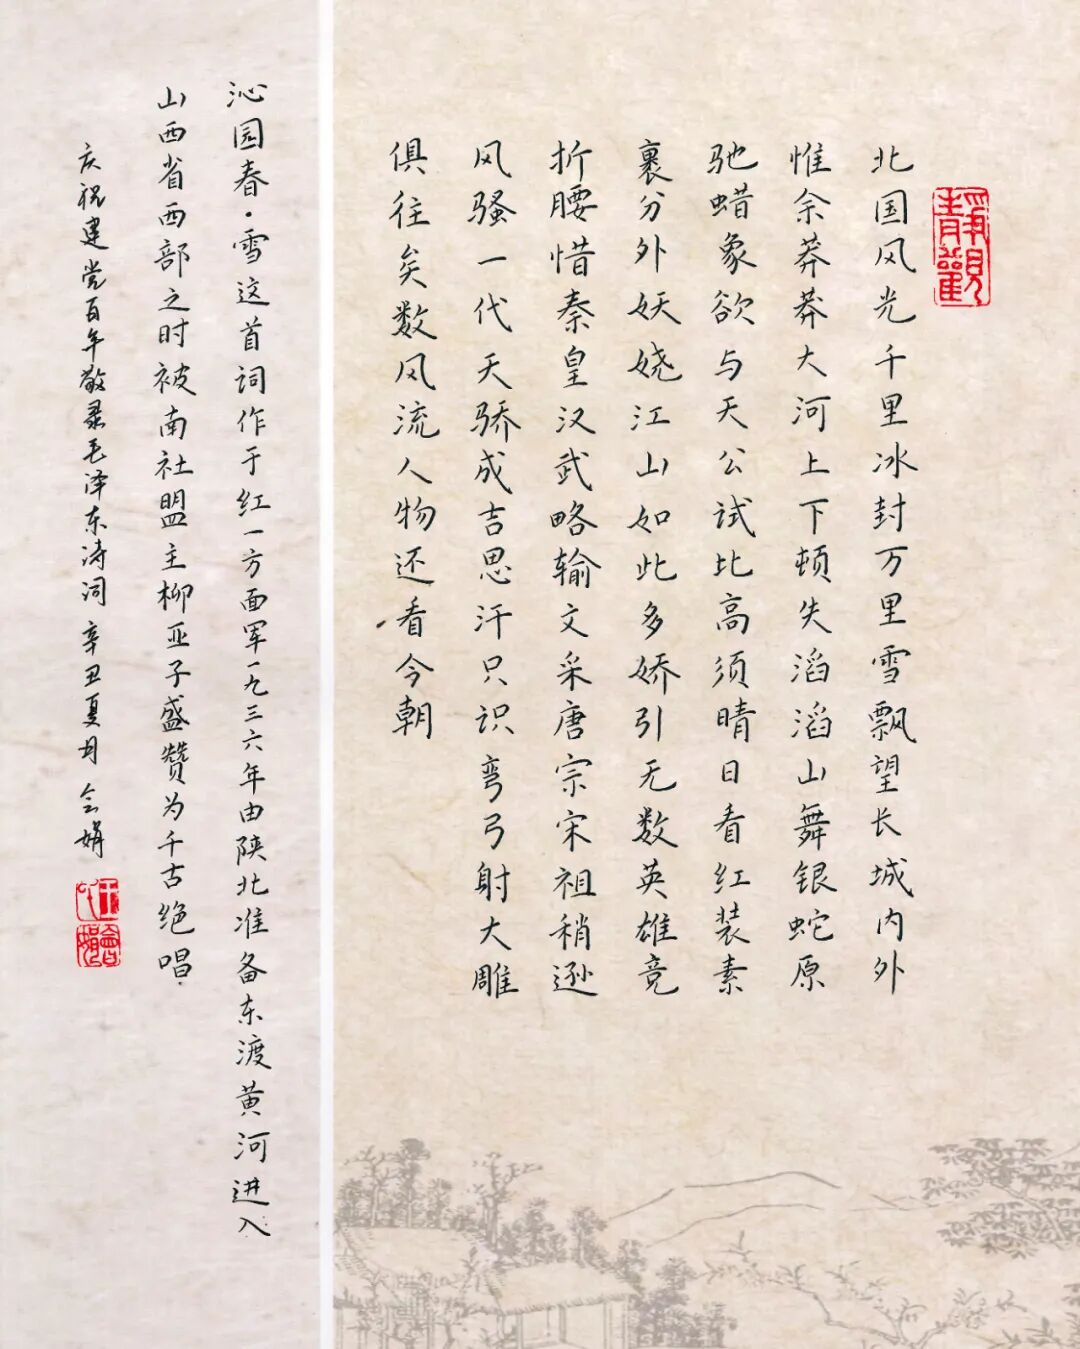 靜觀
北国风光千里冰封万里雪飘望长城内外
惟余莽莽大河上下顿失滔滔山舞银蛇原
驰蜡象欲与天公试比高须晴日看红装素
裹分外妖娆江山如此多娇引无数英雄竞
折腰惜秦皇汉武略输文采唐宗宋祖稍逊
风骚一代天骄成吉思汗只识弯弓射大雕
俱往矣数风流人物还看今朝
沁园春·雪这首词作于红一方面军一九三六年由陕北准备东渡黄河进入
山西省西部之时被南社盟主柳亚子盛赞为千古绝唱
庆祝建党百年敬录毛泽东诗词辛丑夏月会娟
王
會娟